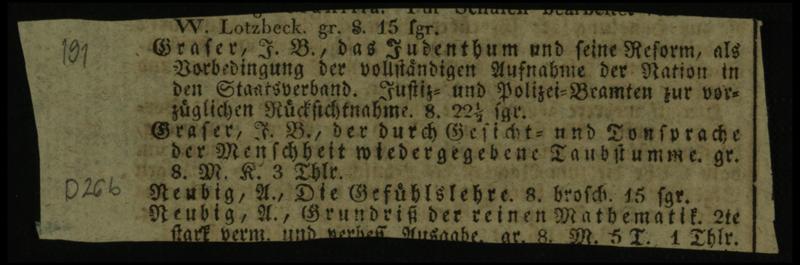 Für Schulen bearbeitet
W. Lotzbeck. gr. 8. 15 sgr.
191
Graser, J. B., das Judenthum und seine Reform, als
Vorbedingung der vollständigen Aufnahme der Nation in
den Staatsverband. Justiz- und Polizei-Beamten zur vor-
züglichen Rücksichtnahme. 8. 22½ sgr.
Graser, J. B., der durch Gesicht- und Tonsprache
der Menschheit wiedergegebene Taubstumme. gr.
8. M. K. 3 Thlr.
D266
Neubig, A., Die Gefühlslehre. 8. brosch. 15 sgr.
Neubig, A., Grundriß der reinen Mathematik. 2te
stark verm. und verbess. Ausgabe. gr. 8. M. 5 T. 1 Thlr.